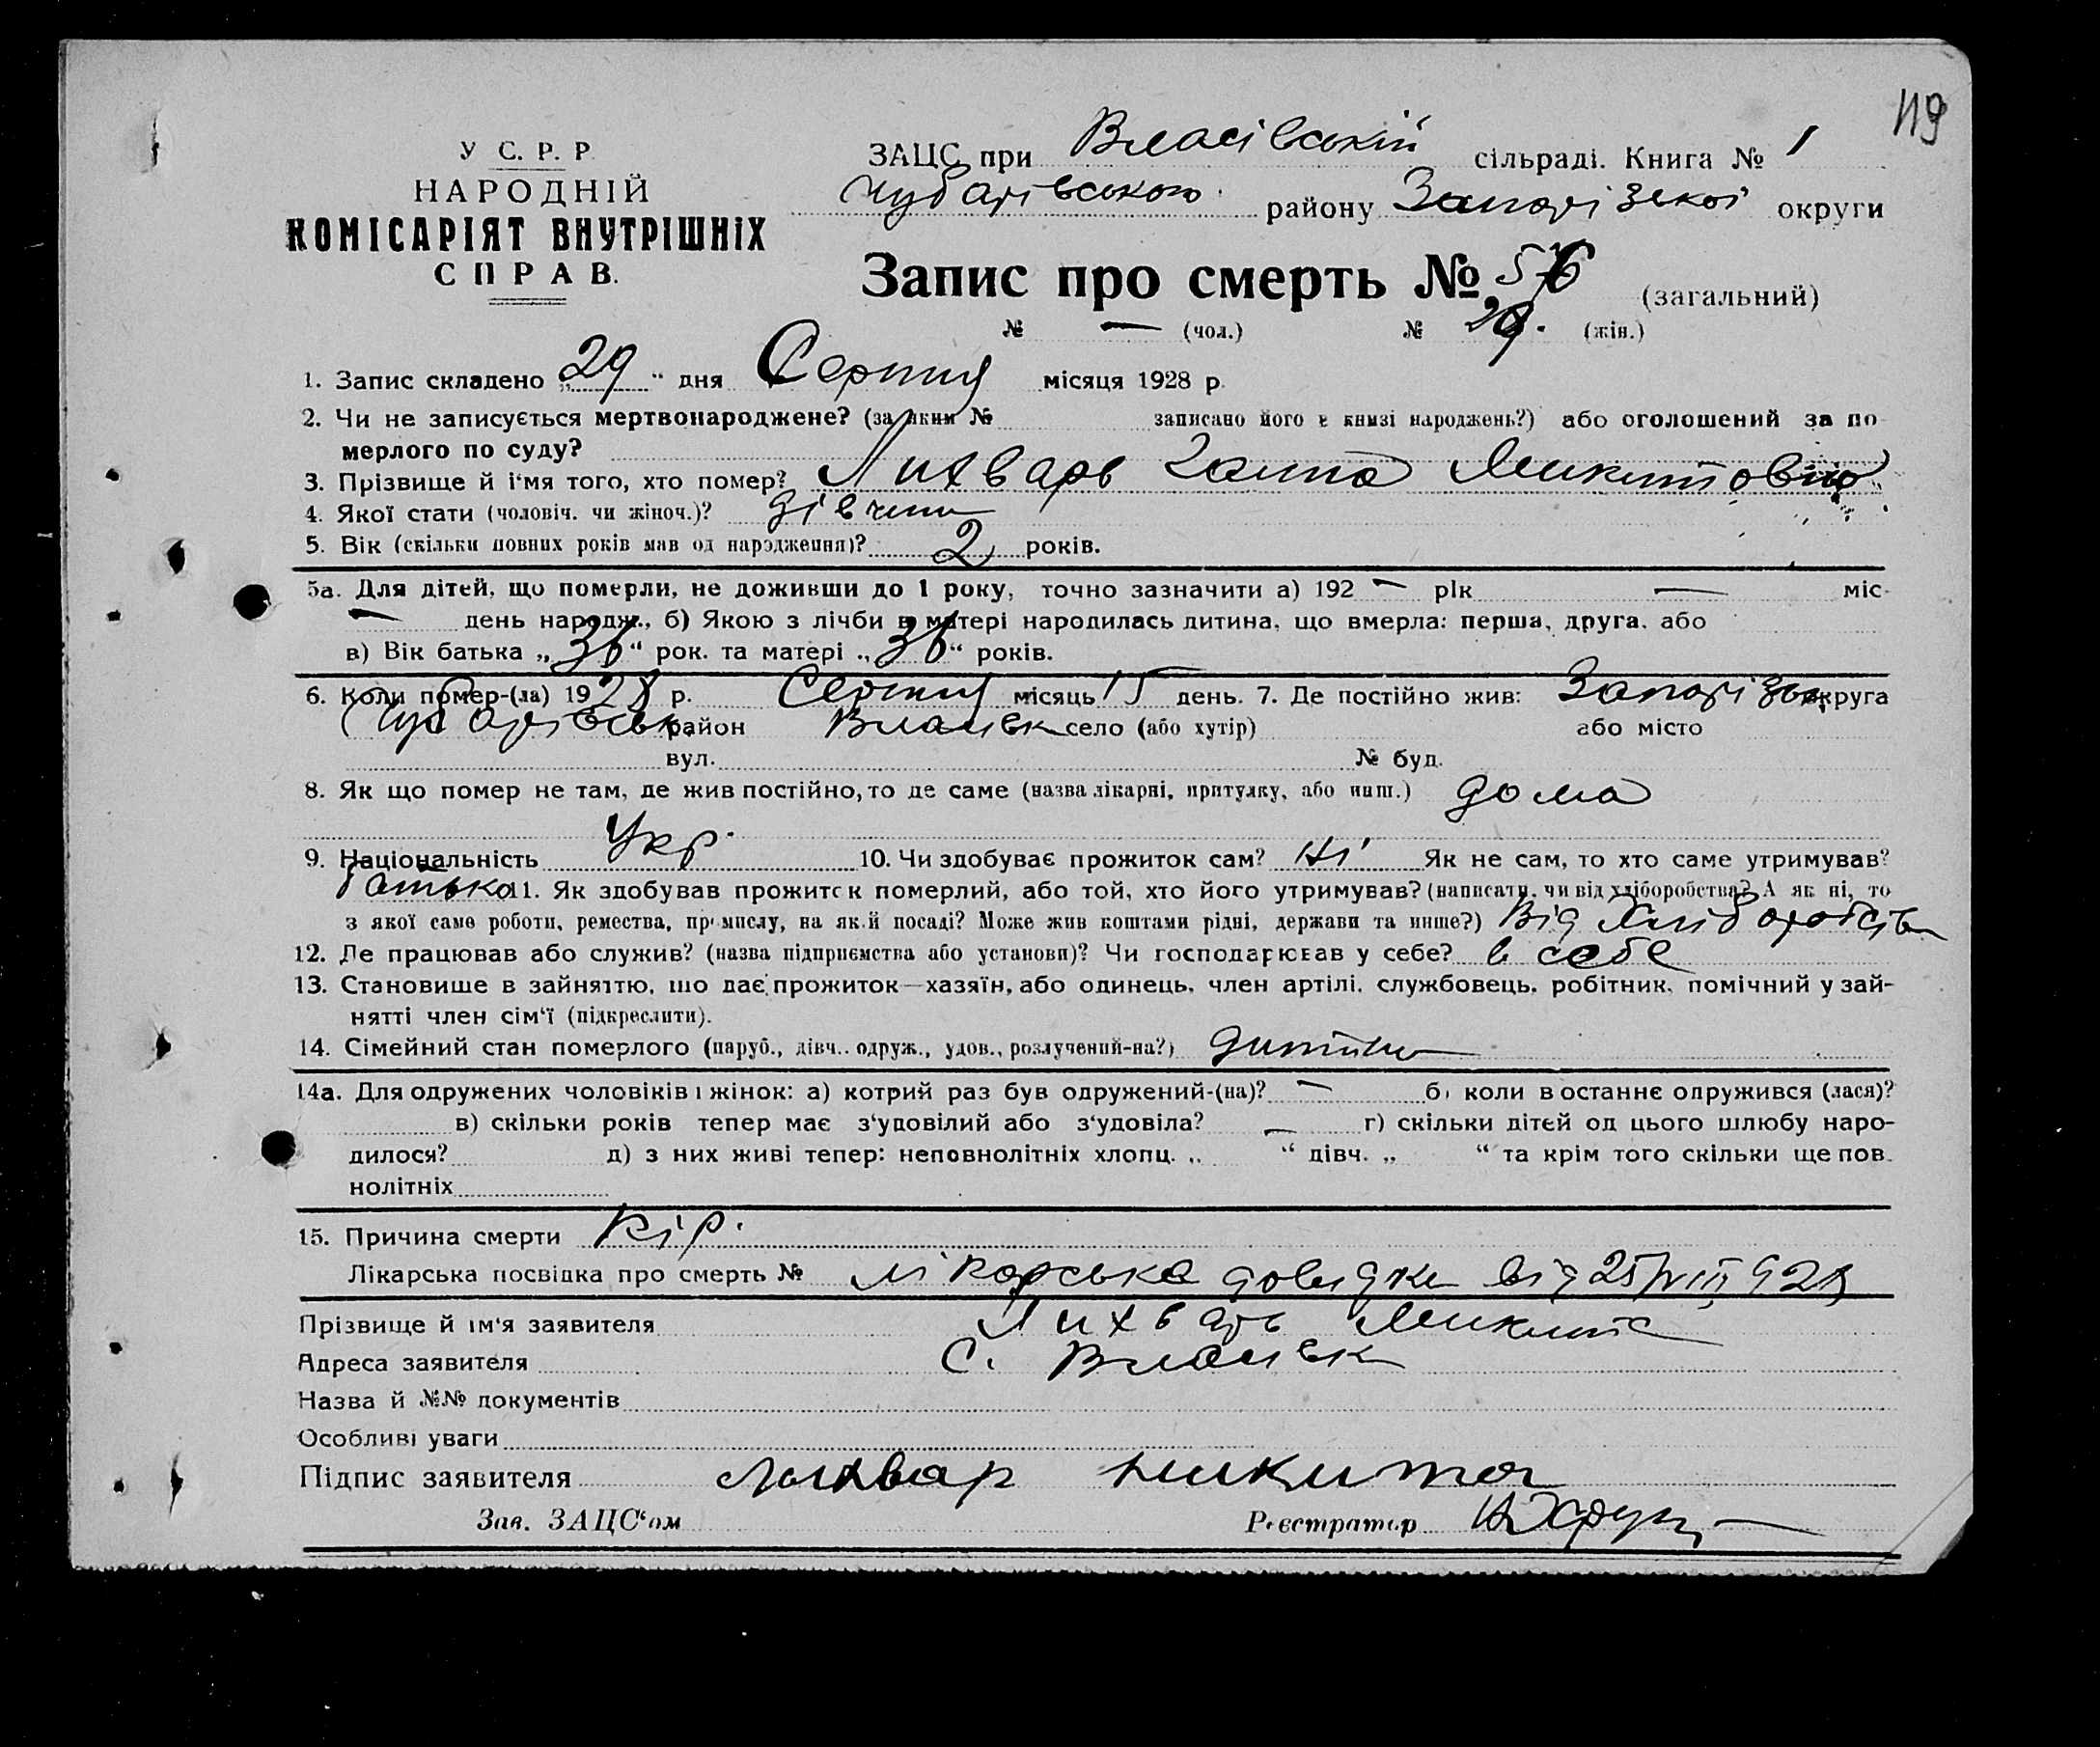 119
У С. Р. Р.
НАРОДНІЙ
КОМІСАРІЯТ ВНУТРІШНІХ
СПРАВ.
ЗАЦС при Власівській сільраді. Книга № 1
Чубарівського району Запорізької округи
Запис про смерть № 56 (загальний)
№ — (чол.) № 29. (жін.)
1. Запис складено „29“ дня Серпня місяця 1928 р.
2. Чи не записується мертвонароджене? (за яким № записано його в книзі народжень?) або оголошений за по-
мерлого по суду?
3. Прізвище й і'мя того, хто помер? Лихварь Ганна Микитовна
4. Якої стати (чоловіч. чи жіноч.)? дівчина
5. Вік (скільки повних років мав од народження)? 2 років.
5а. Для дітей, що померли, не доживши до 1 року, точно зазначити а) 192 — рік — міс-
— день народж., б) Якою з лічби в матері народилась дитина, що вмерла: перша, друга, або
в) Вік батька „36“ рок. та матері „36“ років.
6. Коли помер-(ла) 1928 р. Серпня місяць 15 день. 7. Де постійно жив: Запорізьк. округа
Чубарівськ. район Власівк село (або хутір) або місто
вул. № буд.
8. Як що помер не там, де жив постійно, то де саме (назва лікарні, притулку, або инш.) дома
9. Національність Укр. 10. Чи здобуває прожиток сам? ні Як не сам, то хто саме утримував?
батько 11. Як здобував прожиток померлий, або той, хто його утримував? (написати, чи від хліборобства? А як ні, то
з якої саме роботи, ремества, промислу, на якій посаді? Може жив коштами рідні, держави та инше?) Від Хліборобства
12. Де працював або служив? (назва підприємства або установи)? Чи господарював у себе? в себе
13. Становище в зайняттю, що дає прожиток—хазяїн, або одинець, член артілі, службовець, робітник, помічний у зай-
нятті член сім'ї (підкреслити).
14. Сімейний стан померлого (паруб., дівч., одруж., удов., розлучений-на?) дитина
14а. Для одружених чоловіків і жінок: а) котрий раз був одружений-(на)? — б) коли в останнє одружився (лася)?
в) скільки років тепер має з'удовілий або з'удовіла? — г) скільки дітей од цього шлюбу наро-
дилося? д) з них живі тепер: неповнолітніх хлопц. „ “ дівч. „ “ та крім того скільки ще пов-
нолітніх
15. Причина смерти Кір.
Лікарська посвідка про смерть № лікарська довидка від 25/VIII 928
Прізвище й ім'я заявителя Лихварь Микита
Адреса заявителя С. Власівк
Назва й №№ документів
Особливі уваги
Підпис заявителя Лихвар Никита
Зав. ЗАЦС'ом Реєстратор